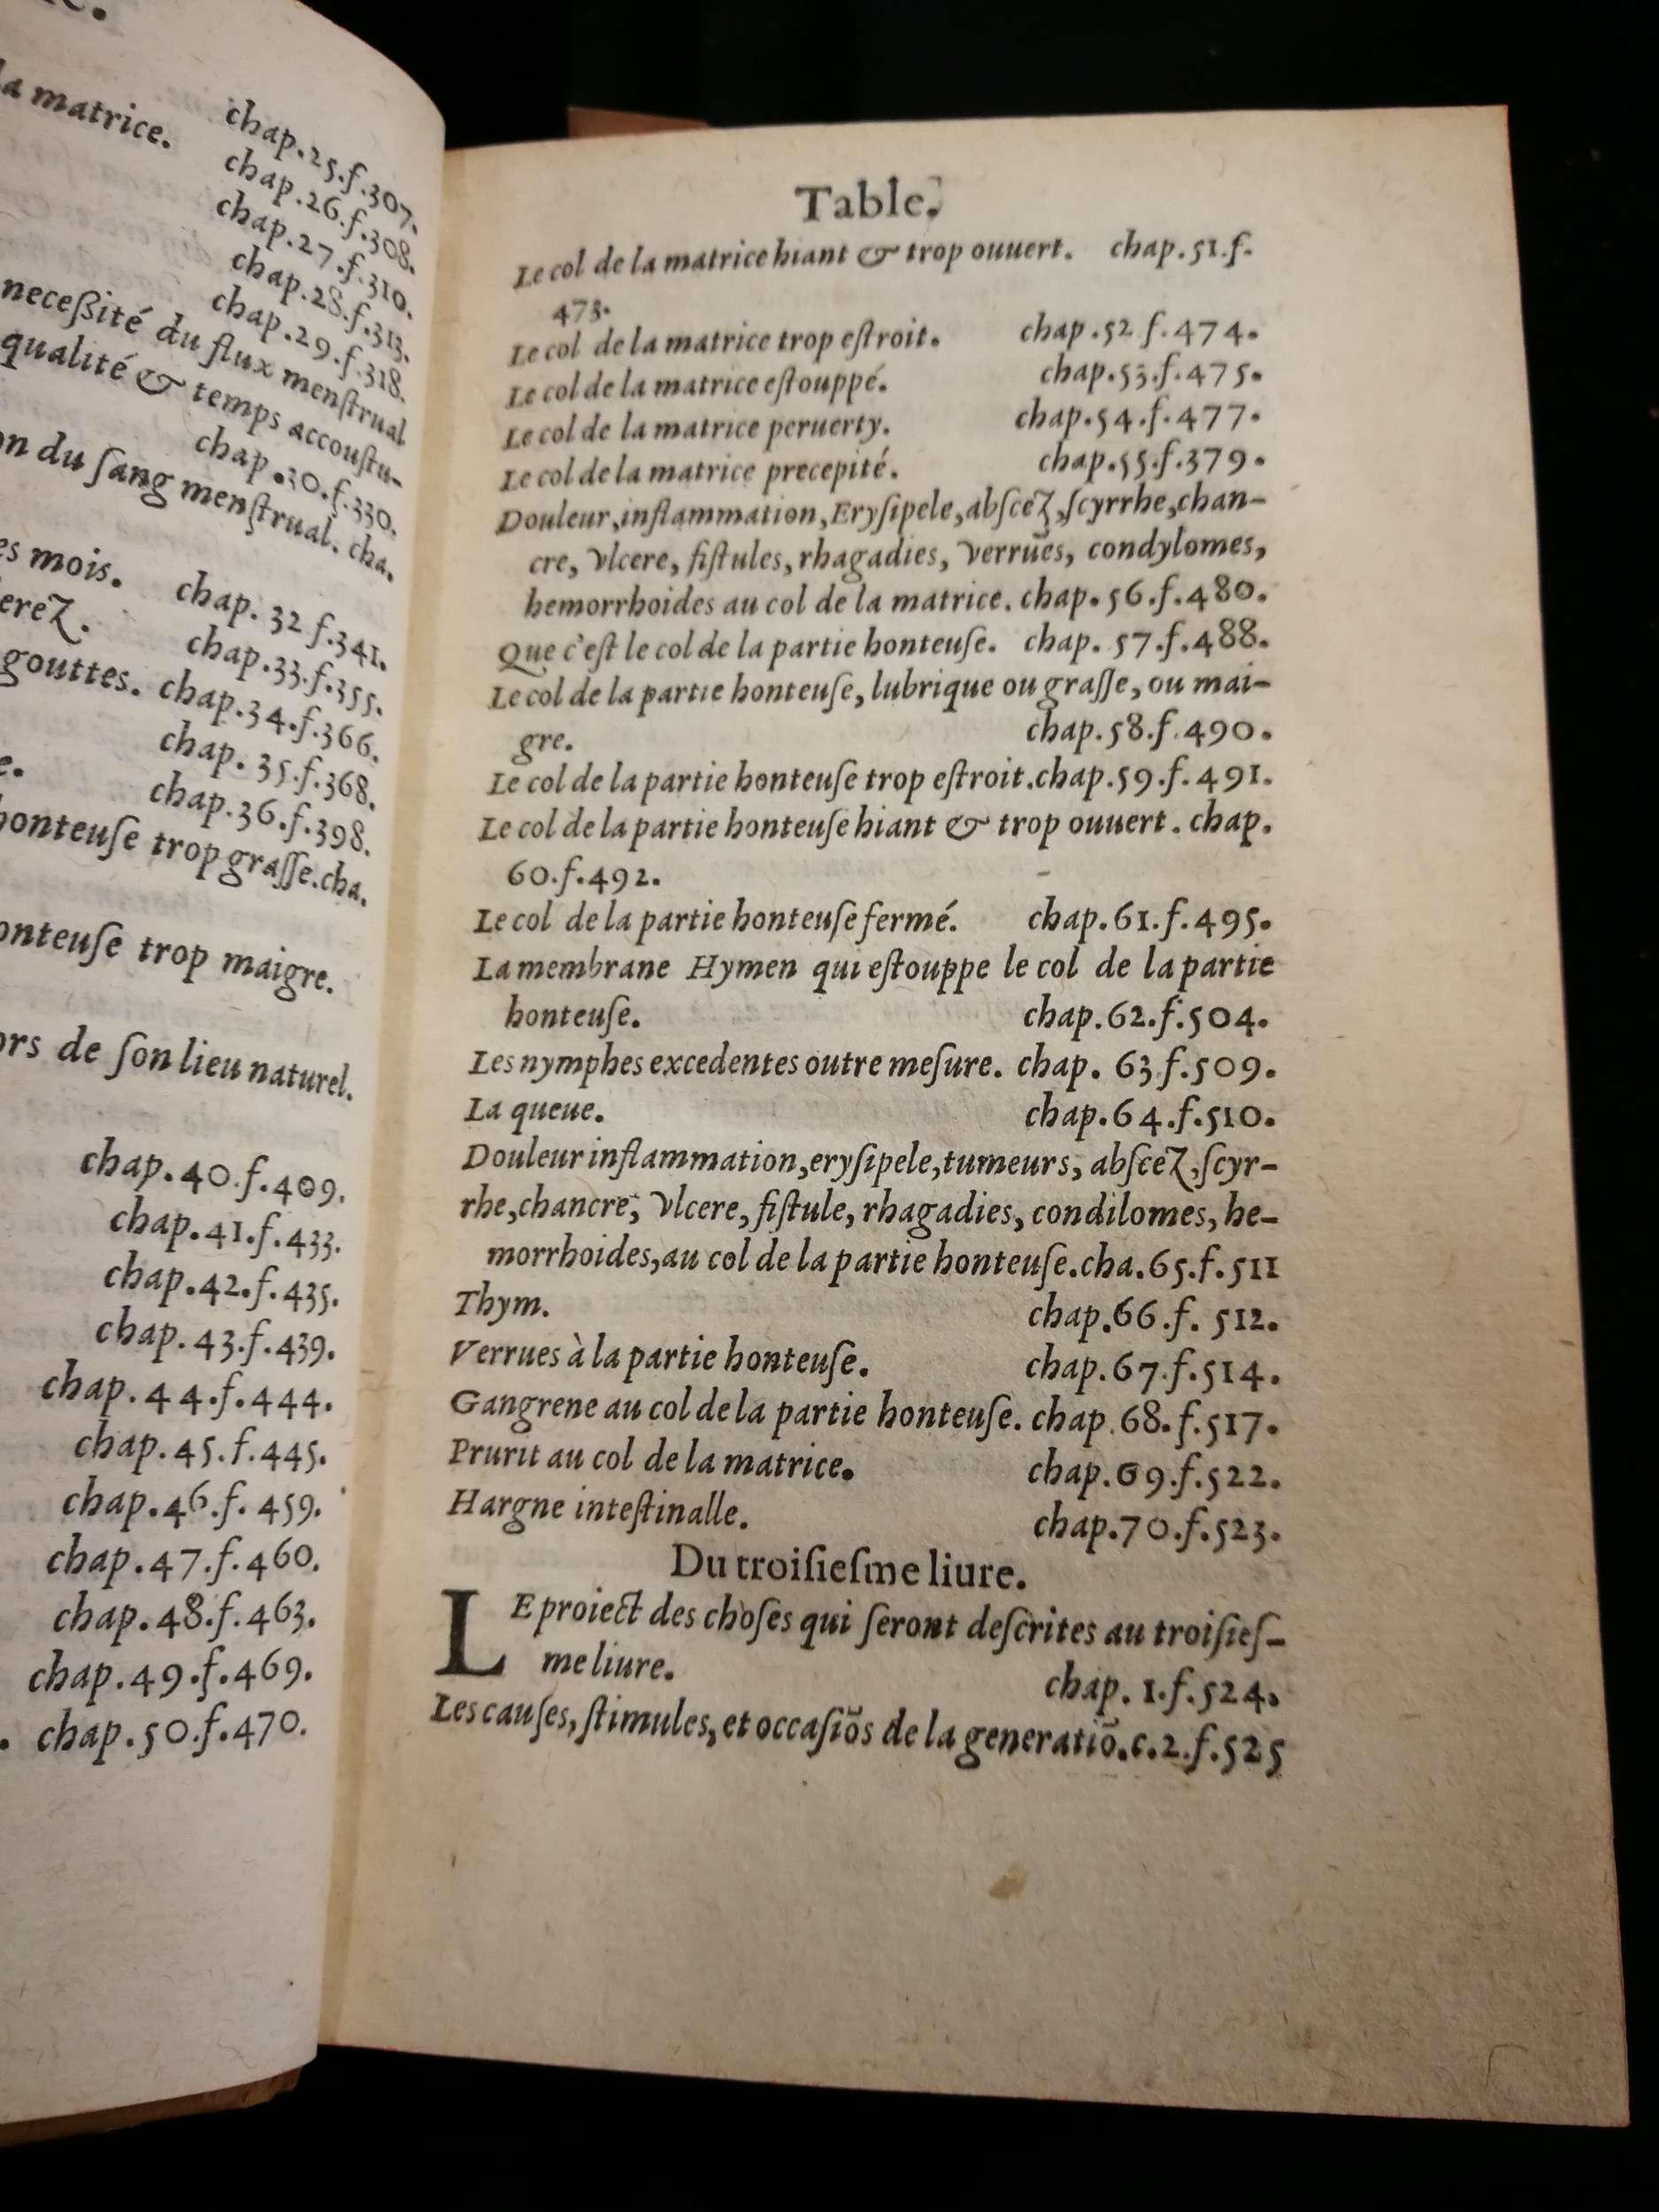 la matrice. chap.25.f.307.
chap.26.f.308.
chap.27.f.310.
chap.28.f.313.
chap.29.f.318.
neceßité du flux menſtrual
qualité & temps accouſtu-
chap.30.f.330.
du ſang menſtrual. cha.
mois. chap. 32 f.341.
chap.33.f.355.
gouttes. chap.34.f.366.
chap. 35.f.368.
chap.36.f.398.
honteuſe trop graſſe.cha.
honteuſe trop maigre.
de ſon lieu naturel.
chap.40.f.409.
chap.41.f.433.
chap.42.f.435.
chap.43.f.439.
chap.44.f.444.
chap.45.f.445.
chap.46.f. 459.
chap.47.f.460.
chap.48.f.463.
chap.49.f.469.
chap.50.f.470.
Table.
Le col de la matrice hiant & trop ouuert. chap.51.f.
473.
Le col de la matrice trop eſtroit. chap.52 f.474.
Le col de la matrice eſtouppé. chap.53.f.475.
Le col de la matrice peruerty. chap.54.f.477.
Le col de la matrice precepité. chap.55.f.379.
Douleur,inflammation,Eryſipele,abſcez,ſcyrrhe,chan-
cre, vlcere, fiſtules, rhagadies, verrues, condylomes,
hemorrhoides au col de la matrice. chap. 56.f.480.
Que c'eſt le col de la partie honteuſe. chap. 57.f.488.
Le col de la partie honteuſe, lubrique ou graſſe, ou mai-
gre. chap.58.f.490.
Le col de la partie honteuſe trop eſtroit.chap.59.f.491.
Le col de la partie honteuſe hiant & trop ouuert. chap.
60.f.492.
Le col de la partie honteuſe fermé. chap.61.f.495.
La membrane Hymen qui eſtouppe le col de la partie
honteuſe. chap.62.f.504.
Les nymphes excedentes outre meſure. chap. 63.f.509.
La queue. chap.64.f.510.
Douleur inflammation,eryſipele,tumeurs, abſcez,ſcyr-
rhe,chancre, vlcere, fiſtule, rhagadies, condilomes, he-
morrhoides,au col de la partie honteuſe.cha.65.f.511
Thym. chap.66.f. 512.
Verrues à la partie honteuſe. chap.67.f.514.
Gangrene au col de la partie honteuſe. chap.68.f.517.
Prurit au col de la matrice. chap.69.f.522.
Hargne inteſtinalle. chap.70.f.523.
Du troiſieſme liure.
LE proiect des choſes qui ſeront deſcrites au troiſieſ-
me liure. chap. 1.f.524.
Les cauſes, ſtimules, et occaſiõs de la generatiõ.c.2.f.525